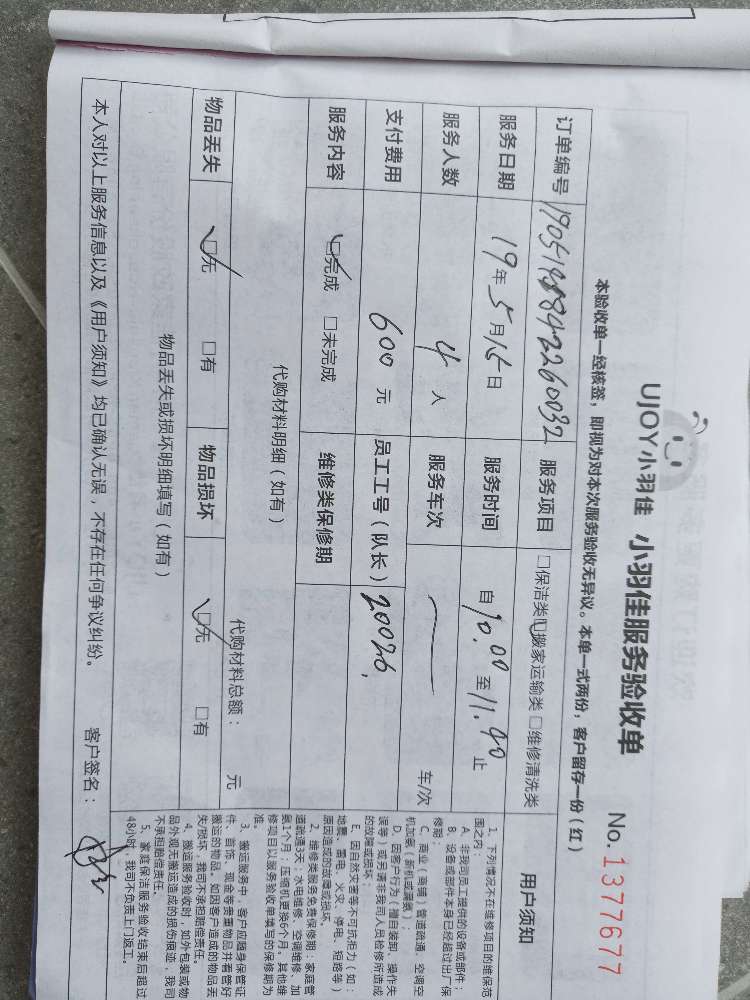 UJOY小羽佳 小羽佳服务验收单 No. 1377677
本验收单一经核签，即视为对本次服务验收无异议。本单一式两份，客户留存一份（红）
订单编号 服务项目 □保洁类 □搬家运输类 □维修清洗类
服务日期 19年5月15日 服务时间 自10.00至11.40止
服务人数 4人 服务车次 车/次
支付费用 600元 员工工号（队长） 20026
服务内容 □完成 □未完成 维修类保修期
代购材料明细（如有）
代购材料总额： 元
物品丢失 □无 □有 物品损坏 □无 □有
物品丢失或损坏明细填写（如有）
本人对以上服务信息以及《用户须知》均已确认无误，不存在任何争议纠纷。 客户签名：
用户须知
1、下列情况不在维修项目的维保范
围之内
A、非我司员工提供的设备或部件；
B、设备或部件本身已经超过出厂保
修期；
C、商业（商铺）管道疏通、空调空
机加氨（新机或漏氟）
D、因客户行为（擅自装卸、操作失
误等）或另请非我司人员检修所造成
的故障或损坏；
E、因自然灾害等不可抗拒力（如：
地震、雷电、火灾、停电、短路等）
原因造成的故障或损坏。
2、维修类服务免费保修期：家庭管
道疏通3天；水电维修、空调维修、加
氨1个月；压缩机更换6个月。其他维
修项目以服务验收单填写的保修期为
准。
3、搬运服务中，客户应随身保管证
件、首饰、现金等贵重物品并看管好
搬运的物品。如因客户造成的物品丢
失/损坏，我司不承担赔偿责任。
4、搬运服务验收时，如外包装或物
品外观无搬运造成的损伤痕迹，我司
不承担赔偿责任。
5、家庭保洁服务验收结束后超过
48小时，我司不负责上门返工。